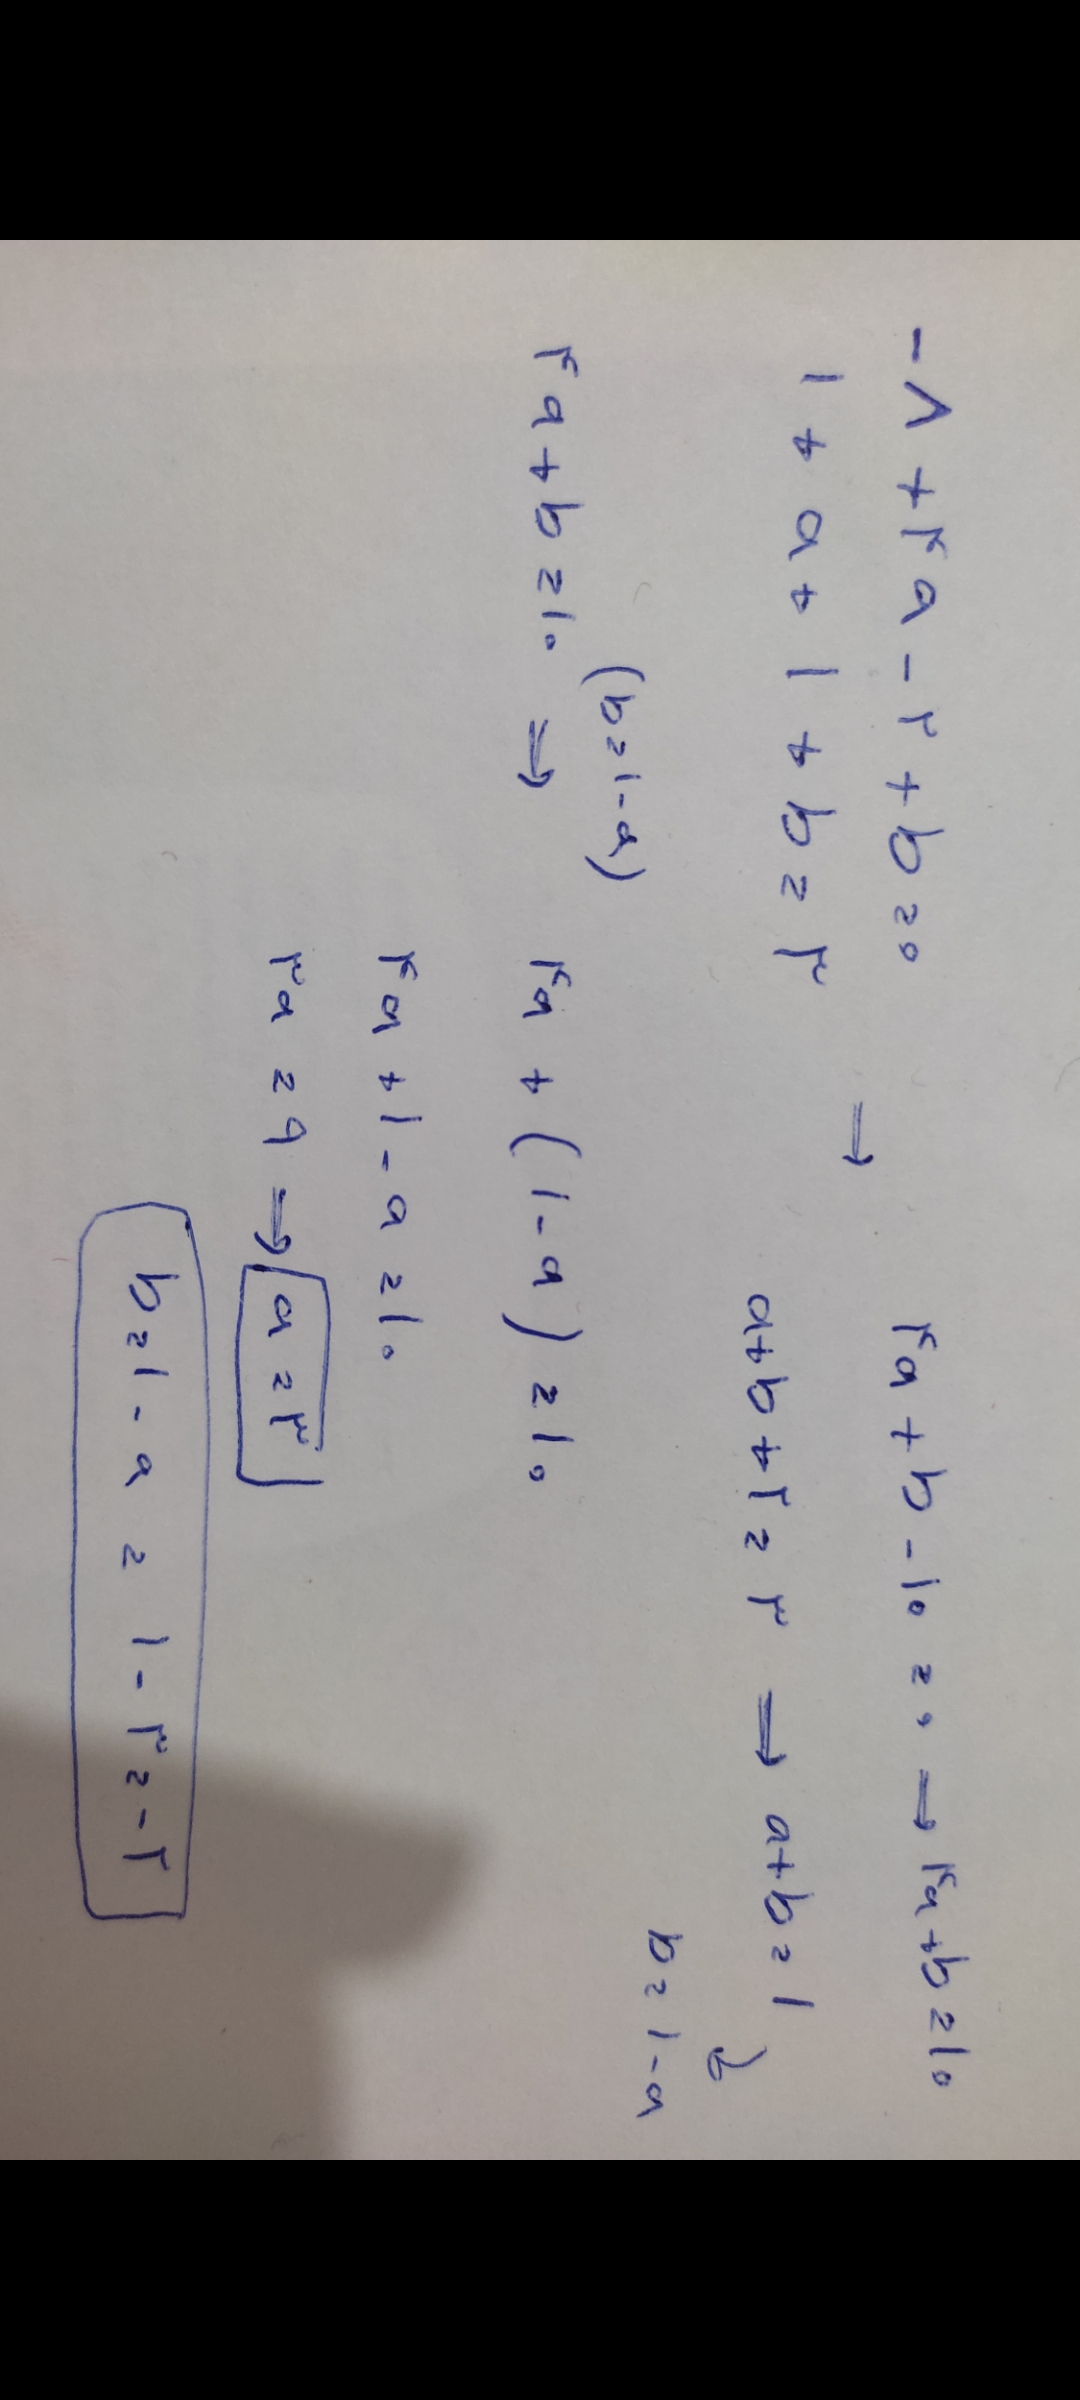 -۸ + ۴a - ۲ + b = ۰ → ۴a + b - ۱۰ = ۰ → ۴a + b = ۱۰
۱ + a + ۱ + b = ۳ a + b + ۲ = ۳ → a + b = ۱
(b = ۱ - a) b = ۱ - a
۴a + b = ۱۰ → ۴a + (۱ - a) = ۱۰
۴a + ۱ - a = ۱۰
۳a = ۹ → a = ۳
b = ۱ - a = ۱ - ۳ = -۲